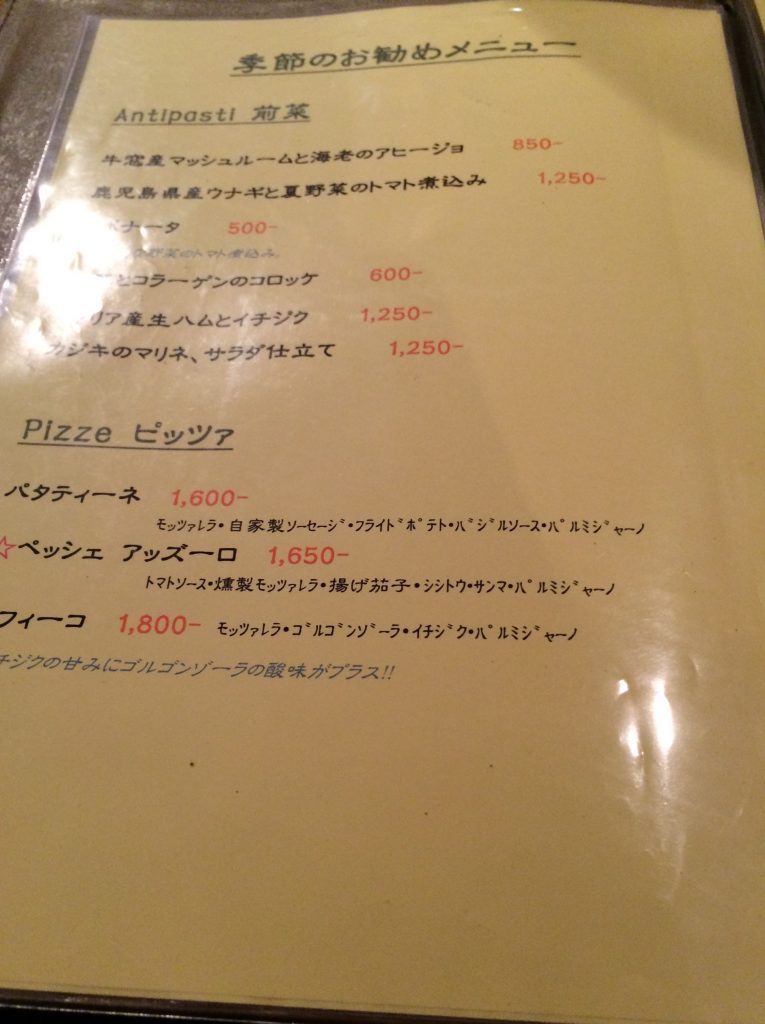 季節のお勧めメニュー
Antipasti 前菜
牛窓産マッシュルームと海老のアヒージョ 850-
鹿児島県産ウナギと夏野菜のトマト煮込み 1,250-
ポナータ 500-
野菜のトマト煮込み
とコラーゲンのコロッケ 600-
リア産生ハムとイチジク 1,250-
カジキのマリネ、サラダ仕立て 1,250-
Pizze ピッツァ
パタティーネ 1,600-
モッツァレラ・自家製ソーセージ・フライドポテト・バジルソース・パルミジャーノ
☆ペッシェ アッズーロ 1,650-
トマトソース・燻製モッツァレラ・揚げ茄子・シシトウ・サンマ・パルミジャーノ
フィーコ 1,800- モッツァレラ・ゴルゴンゾーラ・イチジク・パルミジャーノ
チジクの甘みにゴルゴンゾーラの酸味がプラス!!